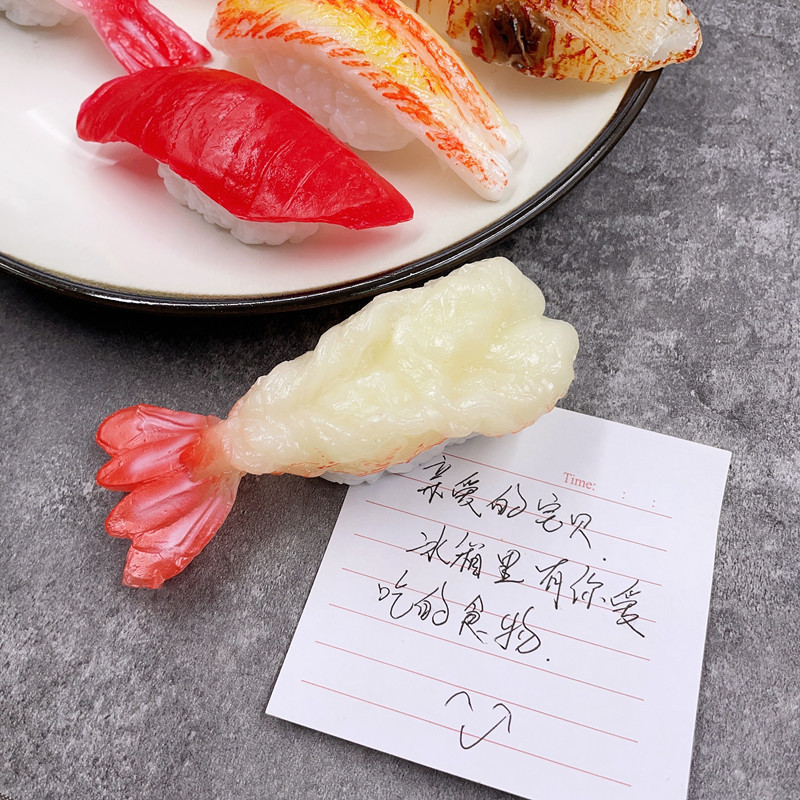 Time: : :
亲爱的宝贝.
冰箱里有你爱
吃的食物.